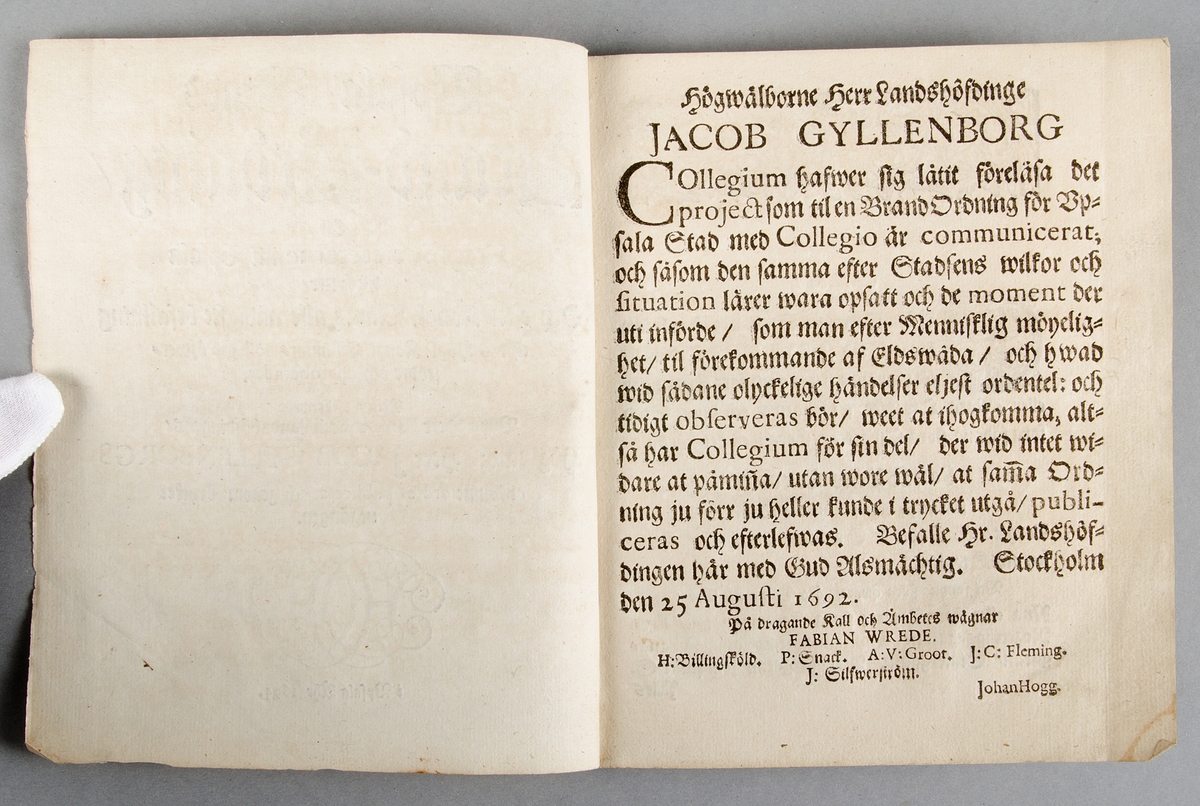 Högwälborne Herr Landshöfdinge
JACOB GYLLENBORG
COllegium hafwer sig låtit föreläsa det
project som til en BrandOrdning för Up-
sala Stad med Collegio är communicerat,
och såsom den samma efter Stadsens wilkor och
situation lärer wara opsatt och de moment der
uti införde / som man efter Mennisklig möyelig-
het / til förekommande af Eldswåda / och hwad
wid sådane olyckelige händelser eljest ordentel: och
tidigt observeras bör / weet at ihogkomma, alt-
så har Collegium för sin del / der wid intet wi-
dare at påmiña / utan wore wäl / at sam̃a Ord-
ning ju förr ju heller kunde i trycket utgå / publi-
ceras och efterlefwas. Befalle Hr. Landshöf-
dingen här med Gud Alsmächtig. Stockholm
den 25 Augusti 1692.
På dragande Kall och Ämbetes wägnar
FABIAN WREDE.
H: Billingsköld. P: Snack. A: V: Groot. J: C: Fleming.
J: Silfwerström.
Johan Hogg.